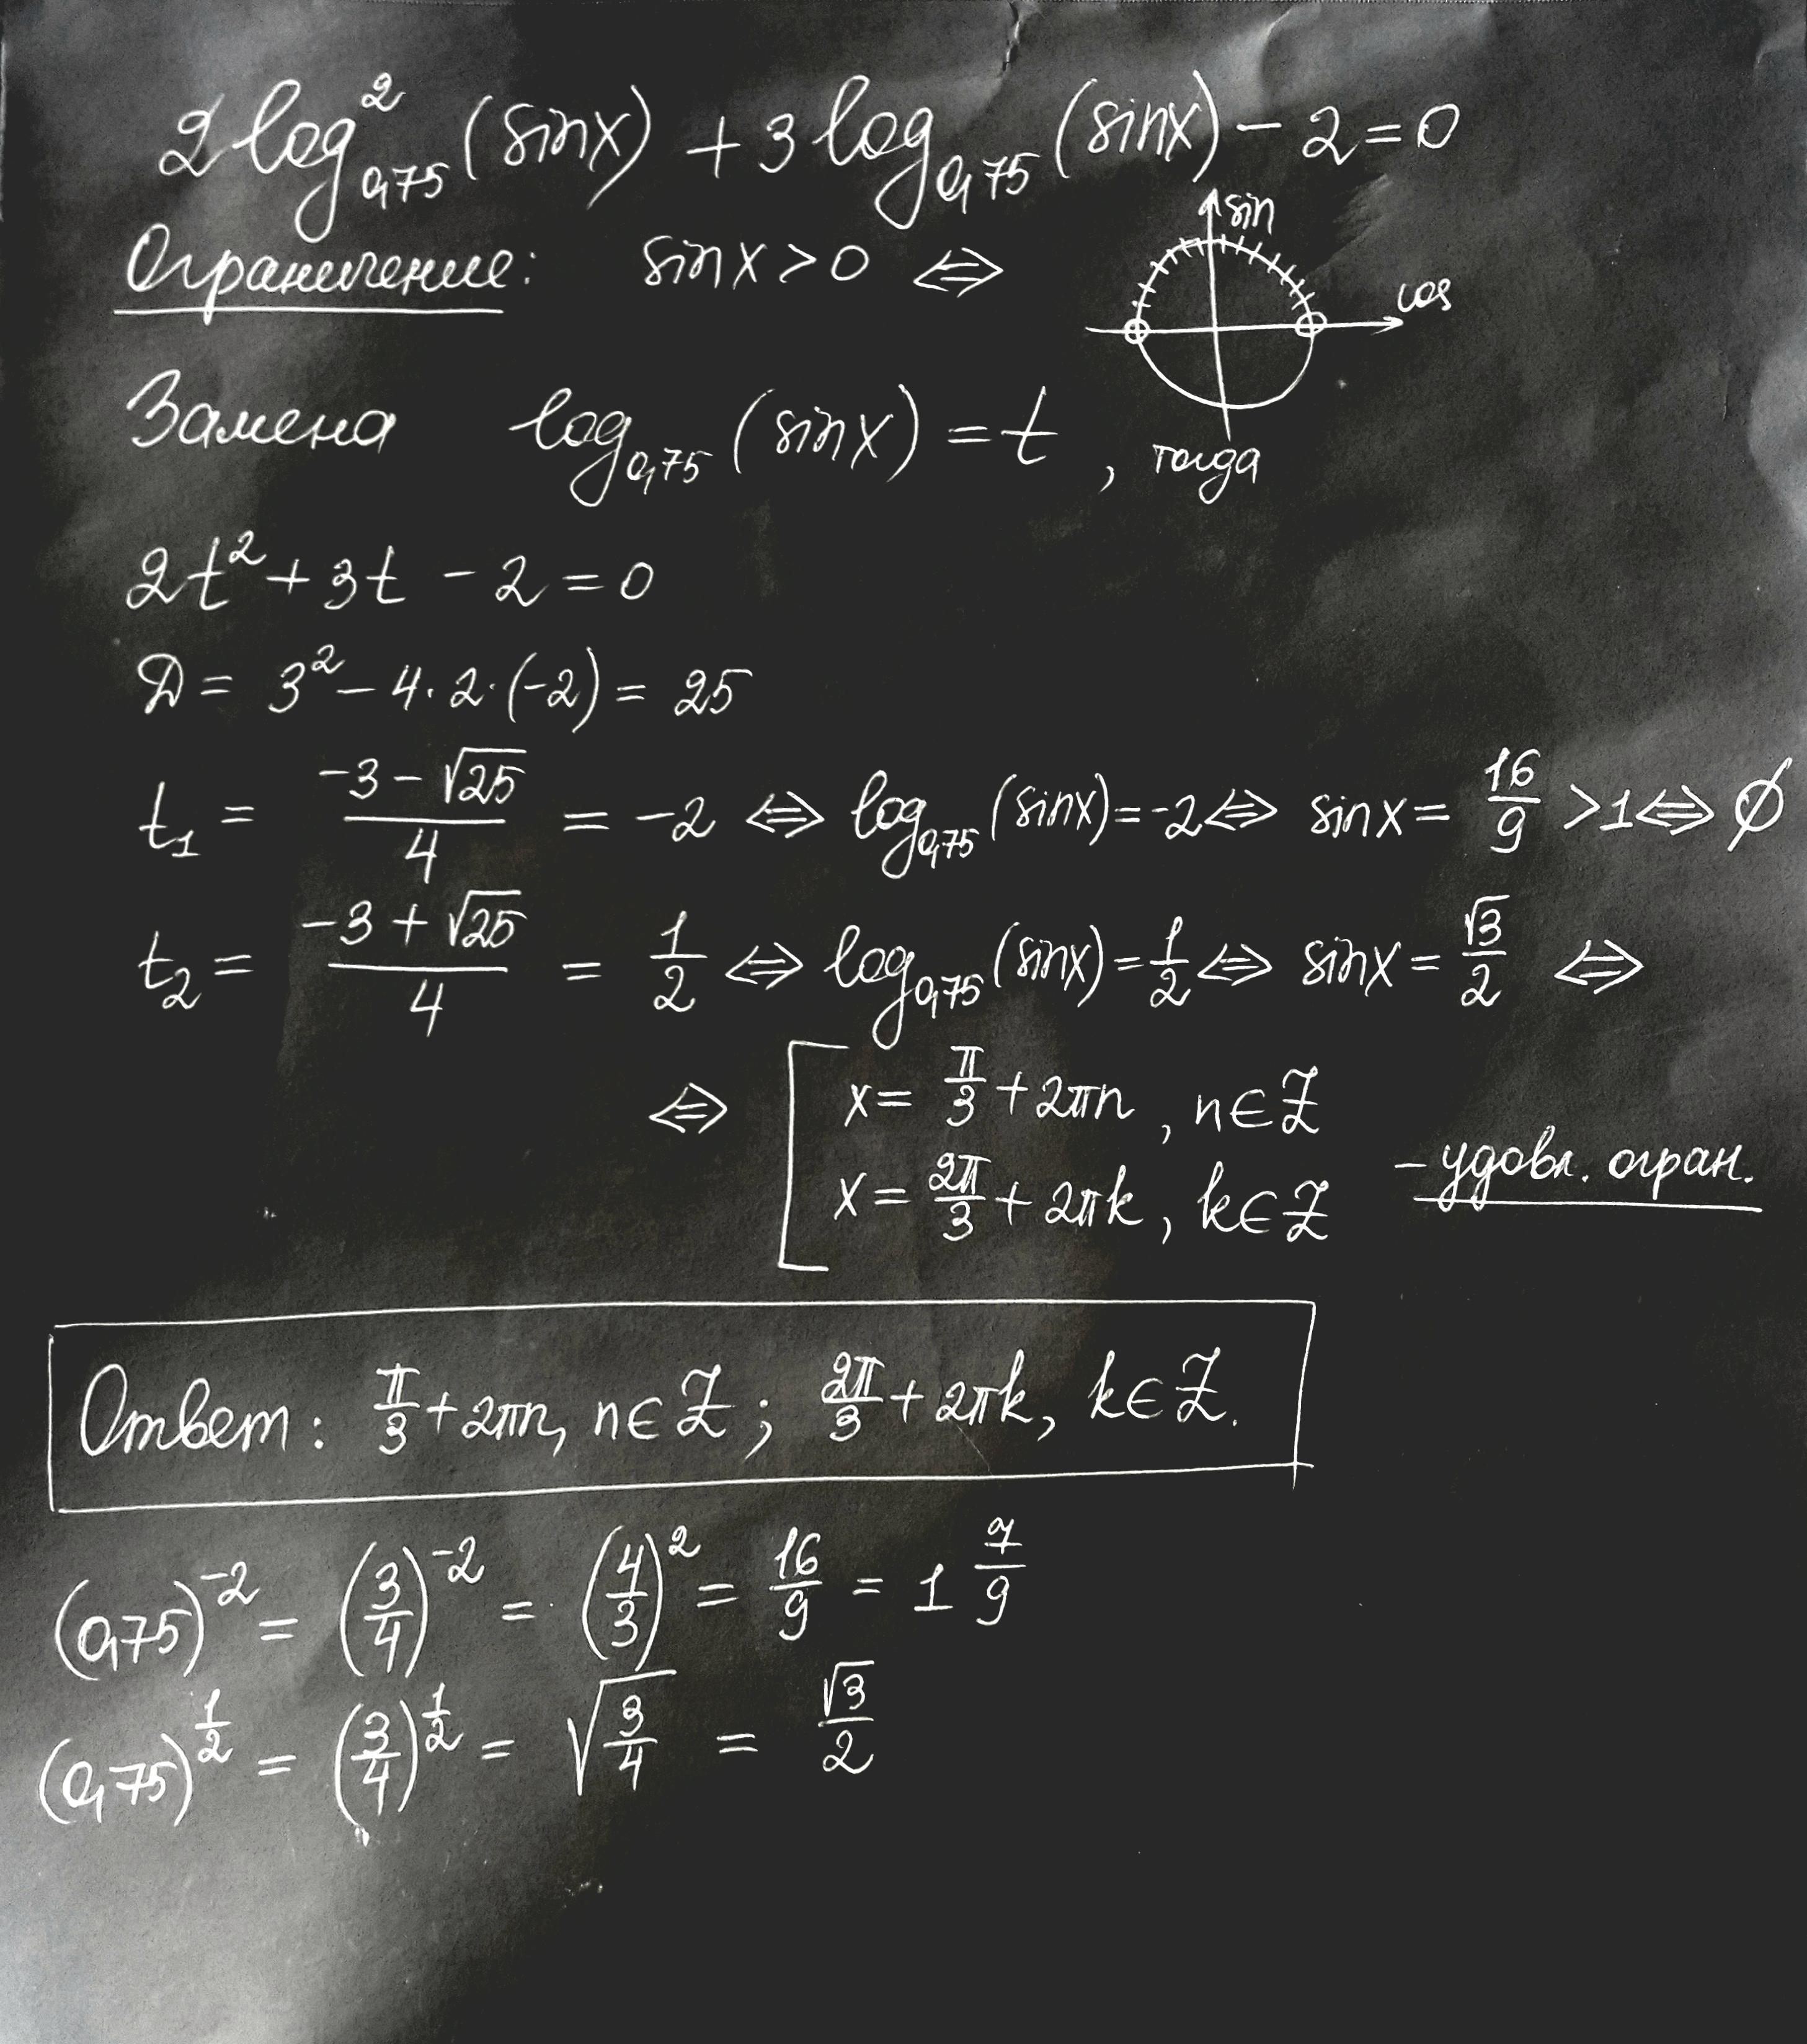 2 log²₀,₇₅ (sinx) + 3 log₀,₇₅ (sinx) - 2 = 0
Ограничение: sinx > 0 ⇔
sin
cos
Замена log₀,₇₅ (sinx) = t , тогда
2t² + 3t - 2 = 0
D = 3² - 4·2·(-2) = 25
t₁ = (-3 - √25)/4 = -2 ⇔ log₀,₇₅ (sinx) = -2 ⇔ sinx = 16/9 > 1 ⇔ ∅
t₂ = (-3 + √25)/4 = 1/2 ⇔ log₀,₇₅ (sinx) = 1/2 ⇔ sinx = √3/2 ⇔
⇔ [ x = π/3 + 2πn , n ∈ Z
x = 2π/3 + 2πk , k ∈ Z - удовл. огран.
Ответ: π/3 + 2πn, n ∈ Z ; 2π/3 + 2πk, k ∈ Z.
(0,75)⁻² = (3/4)⁻² = (4/3)² = 16/9 = 1 7/9
(0,75)^(1/2) = (3/4)^(1/2) = √(3/4) = √3/2